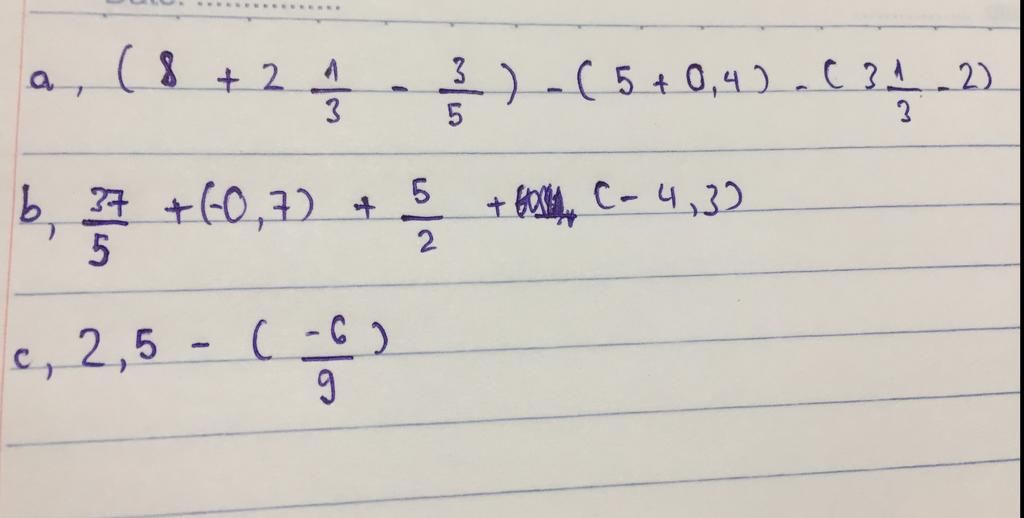 a, ( 8 + 2 1/3 - 3/5 ) - ( 5 + 0,4 ) - ( 3 1/3 - 2 )
b, 37/5 + (-0,7) + 5/2 + ( - 4,3 )
c, 2,5 - ( -6/9 )